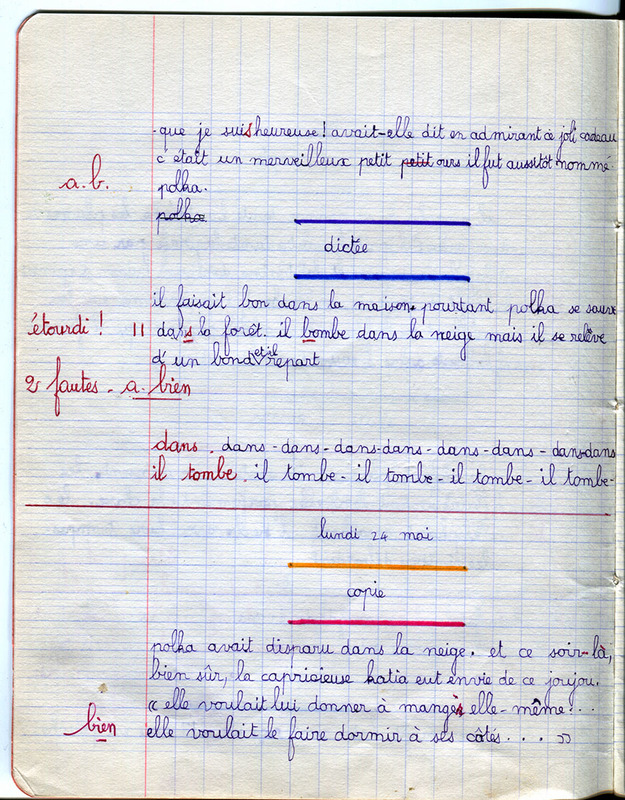 - que je suis heureuse! avait-elle dit en admirant ce joli cadeau
c était un merveilleux petit petit ours il fut aussitôt nommé
a.b.
polka.
polka.
dictée
il faisait bon dans la maison. pourtant polka se sauve
étourdi! || dans la forêt. il bombe dans la neige mais il se relève
d'un bond et il repart
2 fautes - a. bien
dans. dans - dans - dans - dans - dans - dans - dans - dans
il tombe. il tombe - il tombe - il tombe - il tombe -
lundi 24 mai
copie
polka avait disparu dans la neige. et ce soir-là,
bien sûr, la capricieuse katia eut envie de ce joujou.
« elle voulait lui donner à manger elle-même...
bien
elle voulait le faire dormir à ses côtés.... »